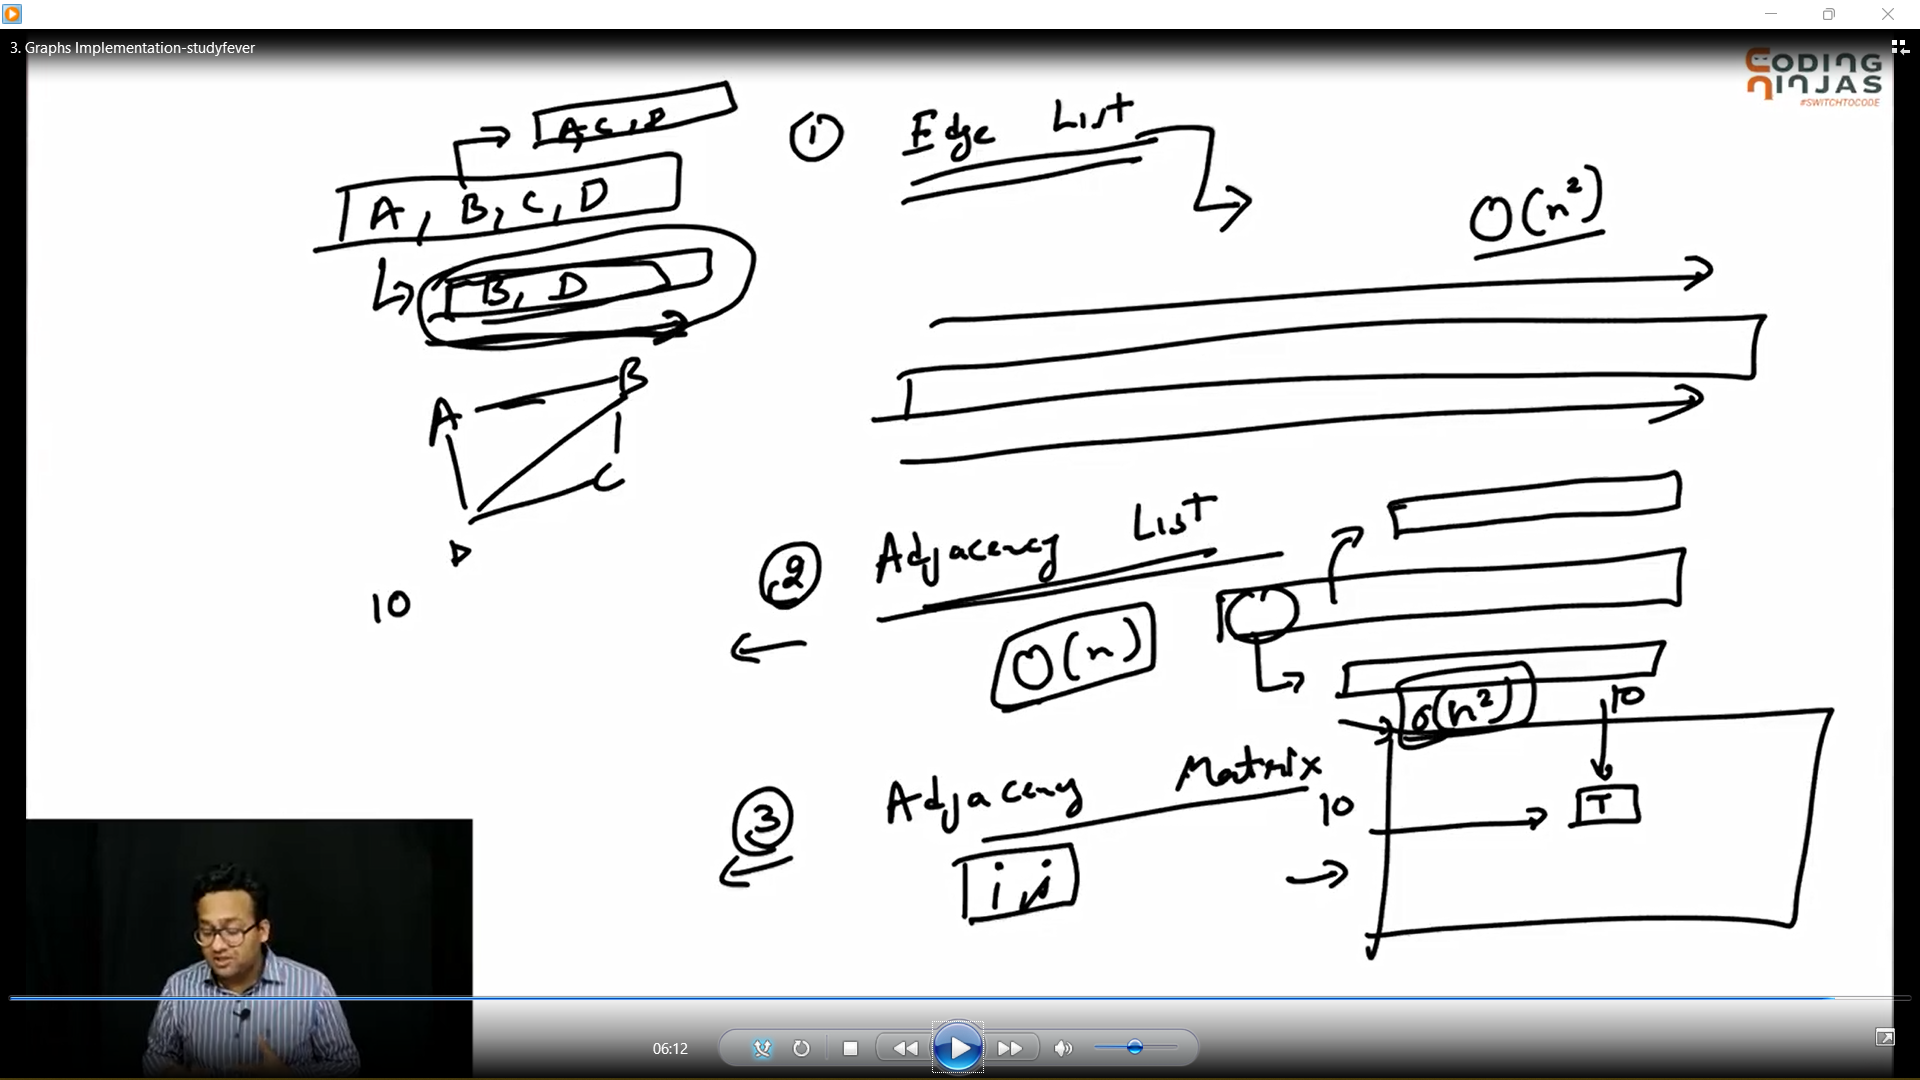 3. Graphs Implementation-studyfever
CODING
NINJAS
#SWITCHTOCODE
A, C, D
A, B, C, D
B, D
A
B
C
D
10
① Edge List
O(n²)
② Adjacency List
O(n)
O(n²)
10
③ Adjacency Matrix
10
T
i, j
06:12